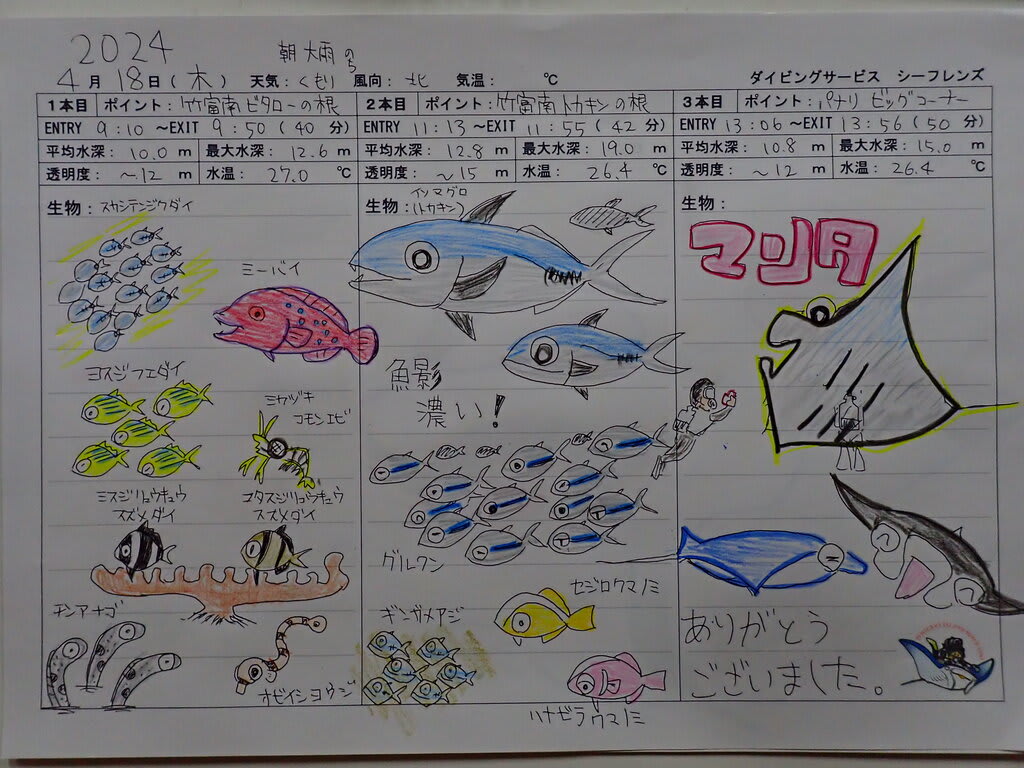 2024 朝大雨のち
4月18日(木) 天気:くもり 風向:北 気温: ℃ ダイビングサービス シーフレンズ
1本目 ポイント:竹富南ビタローの根
ENTRY 9:10 ~EXIT 9:50 (40 分)
平均水深: 10.0 m 最大水深: 12.6 m
透明度: ~12 m 水温: 27.0 ℃
生物: スカシテンジクダイ
ミーバイ
ヨスジフエダイ
ミカヅキ
コモンエビ
ミスジリュウキュウ
スズメダイ
ヨスジリュウキュウ
スズメダイ
チンアナゴ
オビイシヨウジ
2本目 ポイント:竹富南トカキンの根
ENTRY 11:13 ~EXIT 11:55 (42 分)
平均水深: 12.8 m 最大水深: 19.0 m
透明度: ~15 m 水温: 26.4 ℃
生物: イソマグロ
(トカキン)
魚影
濃い!
グルクン
セジロクマノミ
ギンガメアジ
ハナビラクマノミ
3本目 ポイント:パナリ ビッグコーナー
ENTRY 13:06 ~EXIT 13:56 (50 分)
平均水深: 10.8 m 最大水深: 15.0 m
透明度: ~12 m 水温: 26.4 ℃
生物:
マンタ
ありがとう
ございました。